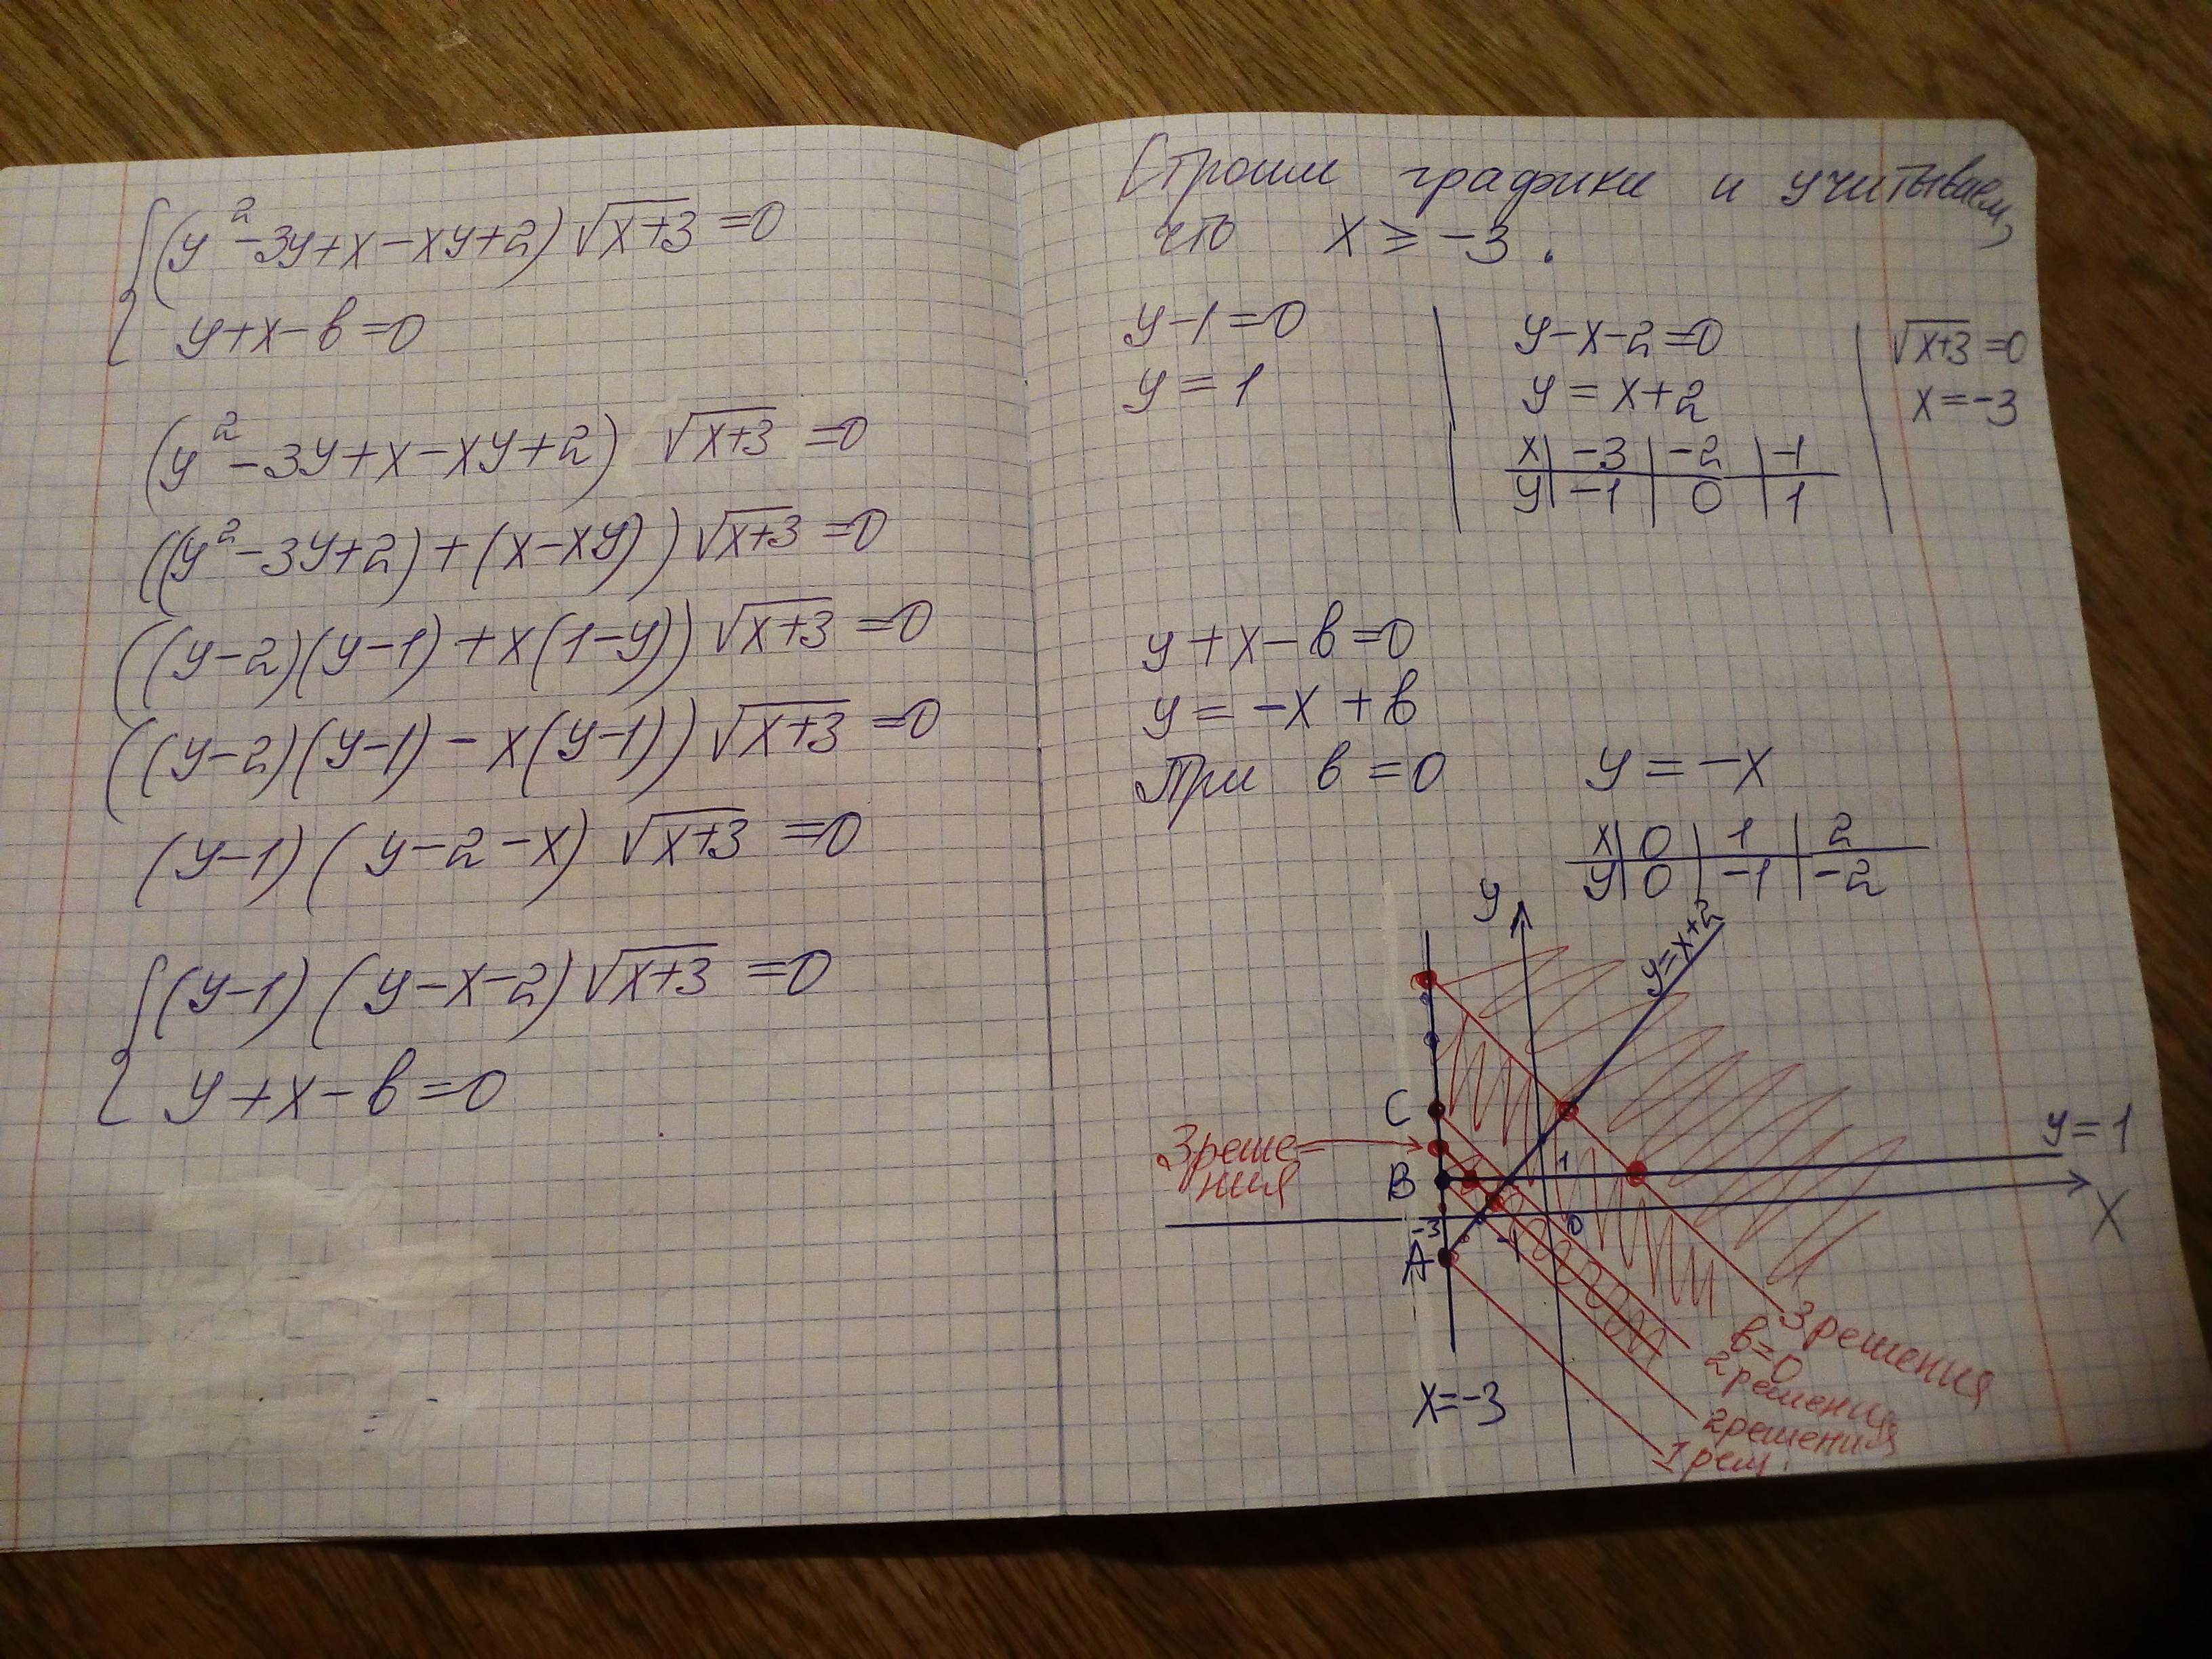 { (y² - 3y + x - xy + 2) √x+3 = 0
y + x - в = 0
(y² - 3y + x - xy + 2) √x+3 = 0
((y² - 3y + 2) + (x - xy)) √x+3 = 0
((y-2)(y-1) + x(1-y)) √x+3 = 0
((y-2)(y-1) - x(y-1)) √x+3 = 0
(y-1)(y-2-x) √x+3 = 0
{ (y-1)(y-x-2) √x+3 = 0
y + x - в = 0
Строим графики и учитываем,
что x ≥ -3.
y-1=0 | y-x-2=0 | √x+3 = 0
y = 1 | y = x+2 | x = -3
x | -3 | -2 | -1
y | -1 | 0 | 1
y + x - в = 0
y = -x + в
При в = 0 y = -x
x | 0 | 1 | 2
y | 0 | -1 | -2
y
y=x+2
C
y=1
3 реше-
ния
1
B
X
-3
0
-1
A
3 решения
в=0
2 решения
x=-3
2 решения
1 реш.